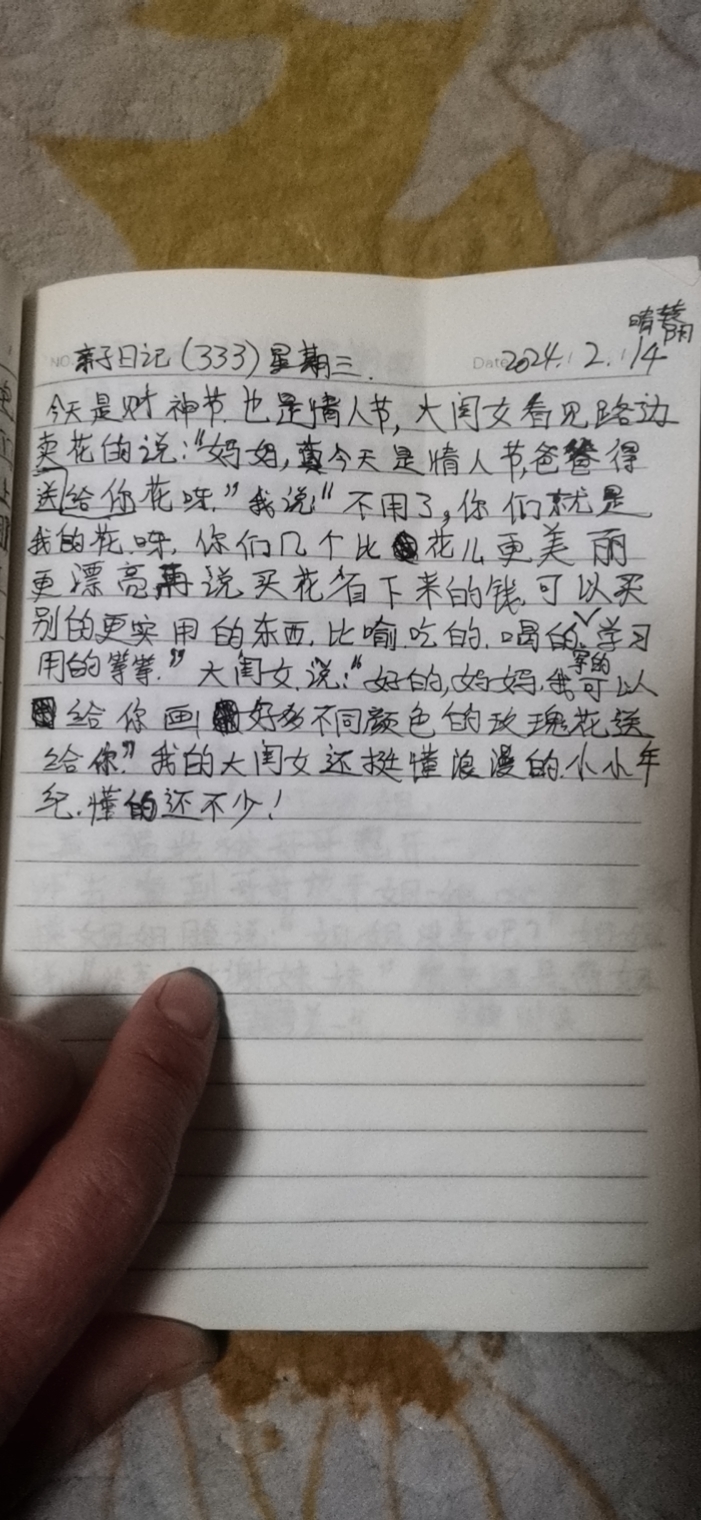 晴转阴
NO. 亲子日记(333)星期三. Date 2024. 2. 14
今天是财神节.也是情人节,大闺女看见路边
卖花的说:“妈妈,今天是情人节,爸爸得
送给你花呀.”我说:“不用了,你们就是
我的花呀.你们几个比花儿更美丽
更漂亮再说买花省下来的钱.可以买
别的更实用的东西.比喻.吃的.喝的.学习
用的等等.”大闺女.说:“好的,妈妈.我可以
写的
给你画好多不同颜色的玫瑰花送
给你.”我的大闺女还挺懂浪漫的.小小年
纪.懂的还不少!